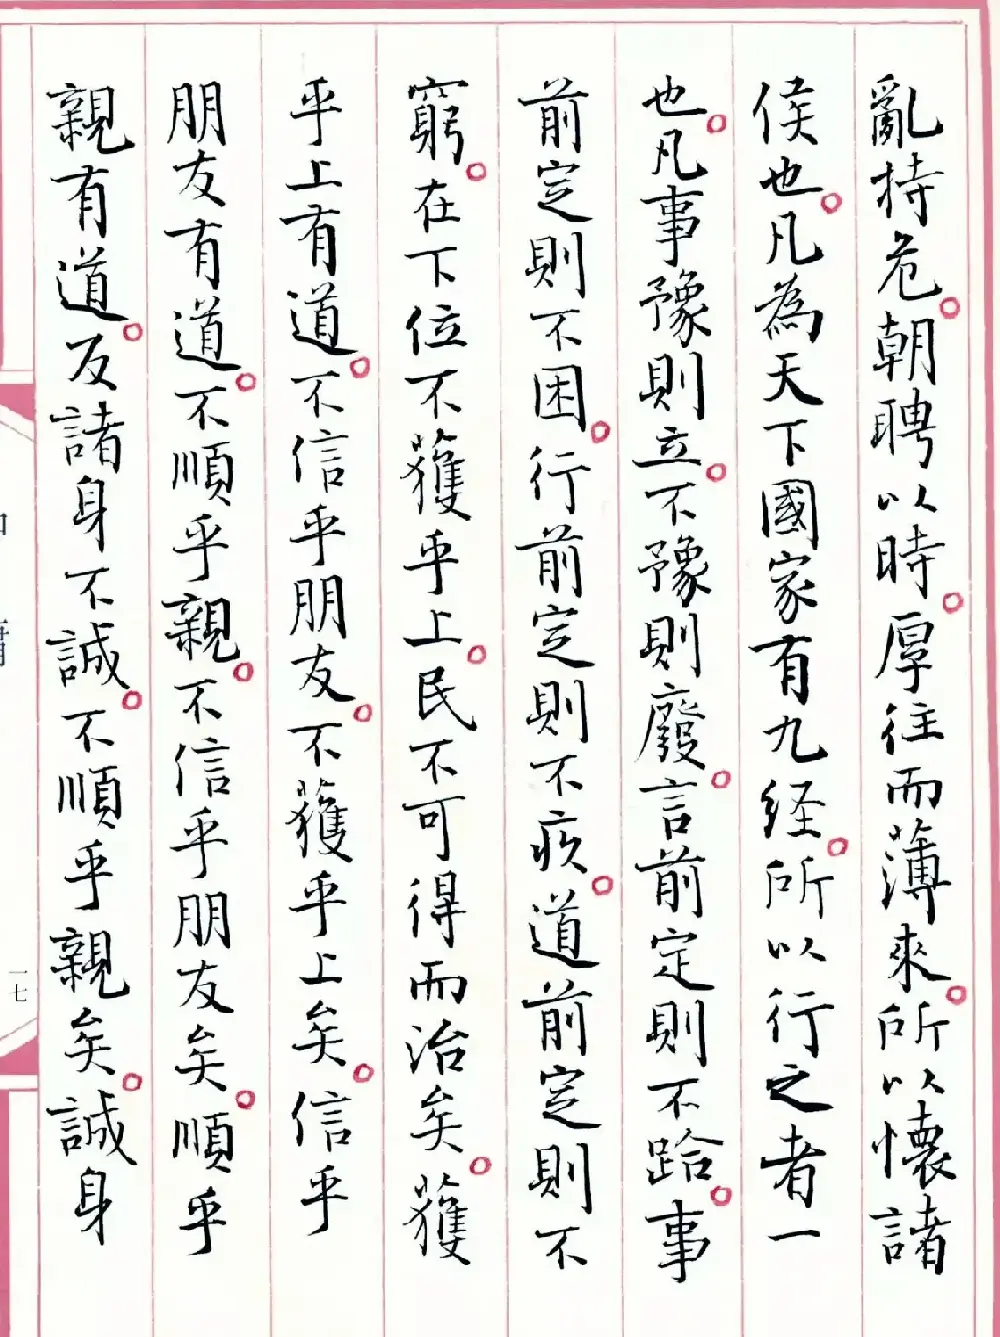 亂持危。朝聘以時。厚往而薄來。所以懷諸
侯也。凡為天下國家有九经。所以行之者一
也。凡事豫則立。不豫則廢。言前定則不跲。事
前定則不困。行前定則不疚。道前定則不
窮。在下位不獲乎上。民不可得而治矣。獲
乎上有道。不信乎朋友。不獲乎上矣。信乎
朋友有道。不順乎親。不信乎朋友矣。順乎
親有道。反諸身不誠。不順乎親矣。誠身
一七